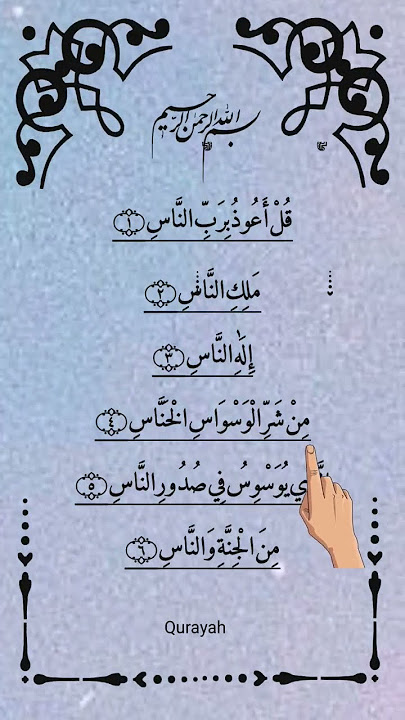 بسم الله الرحمن الرحيم
قُلْ أَعُوذُ بِرَبِّ النَّاسِ ١
مَلِكِ النَّاسِ ٢
إِلَٰهِ النَّاسِ ٣
مِنْ شَرِّ الْوَسْوَاسِ الْخَنَّاسِ ٤
يُوَسْوِسُ فِي صُدُورِ النَّاسِ ٥
مِنَ الْجِنَّةِ وَالنَّاسِ ٦
Qurayah